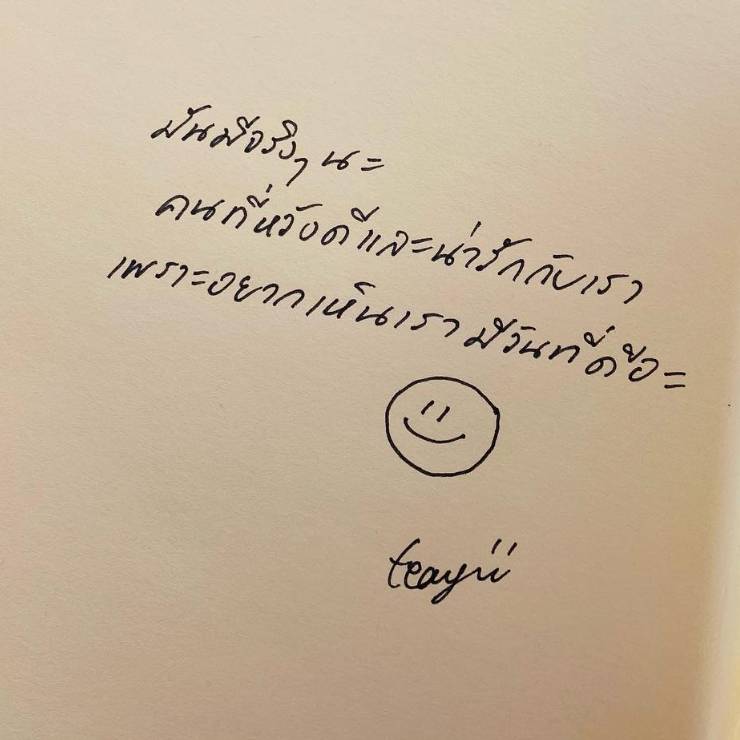 มันมีจริงๆ นะ
คนที่หวังดีและน่ารักกับเรา
เพราะอยากเห็นเรา มีวันที่ดีอะ
teayii